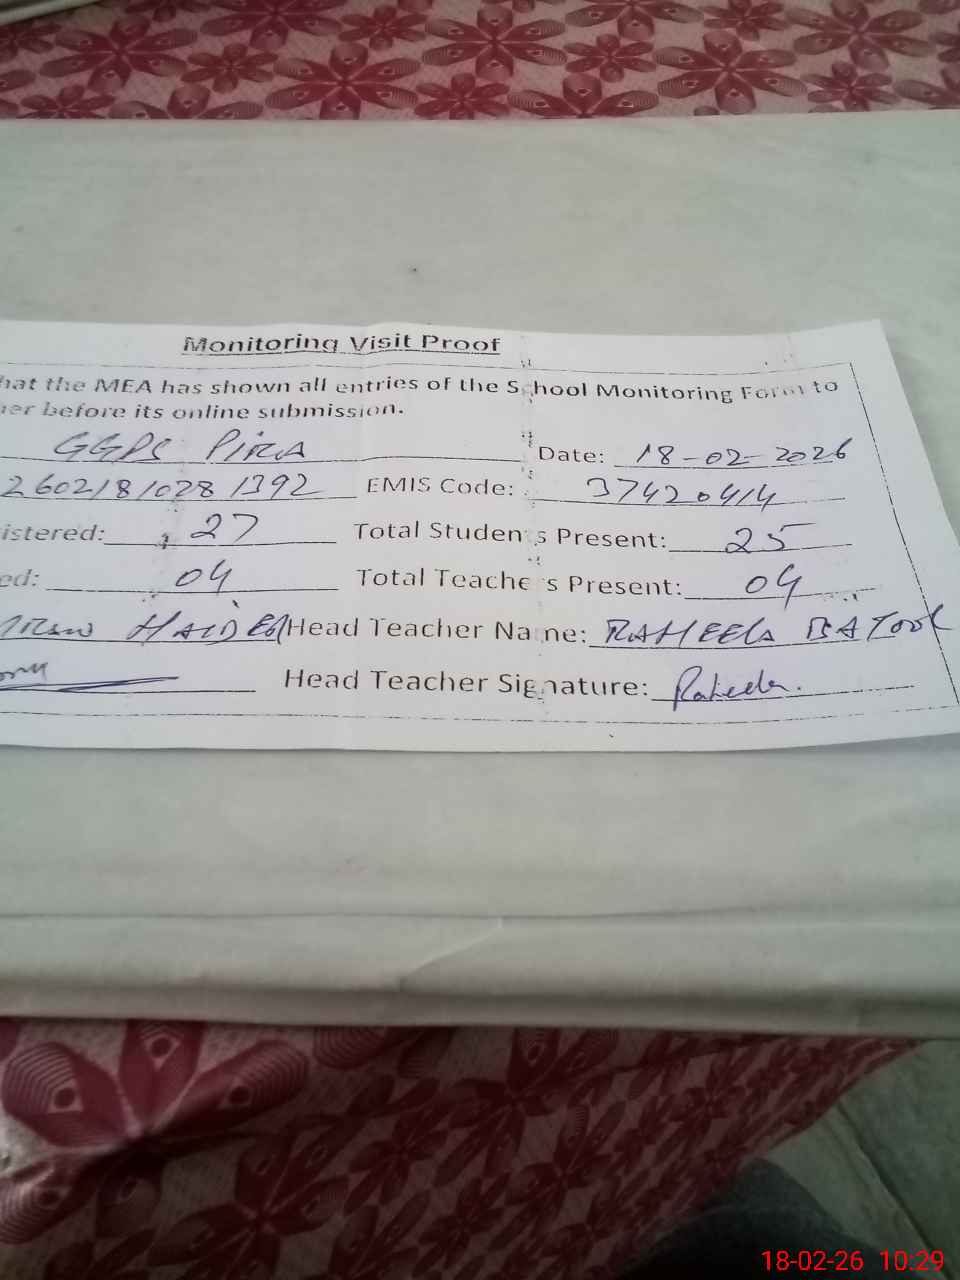 Monitoring Visit Proof
hat the MEA has shown all entries of the School Monitoring Form to
er before its online submission.
GGPS PIRA Date: 18-02-2026
2602181028 1392 EMIS Code: 37420414
istered: 27 Total Students Present: 25
ed: 04 Total Teachers Present: 04
HAIDER Head Teacher Name: RAHEELA BATOOL
Head Teacher Signature: Raheela.
18-02-26 10:29